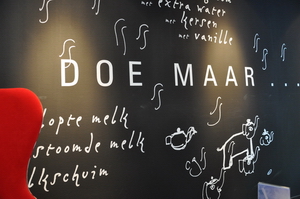 met extra water
met kersen
met vanille
DOE MAAR...
lopte melk
stoomde melk
lkschuim